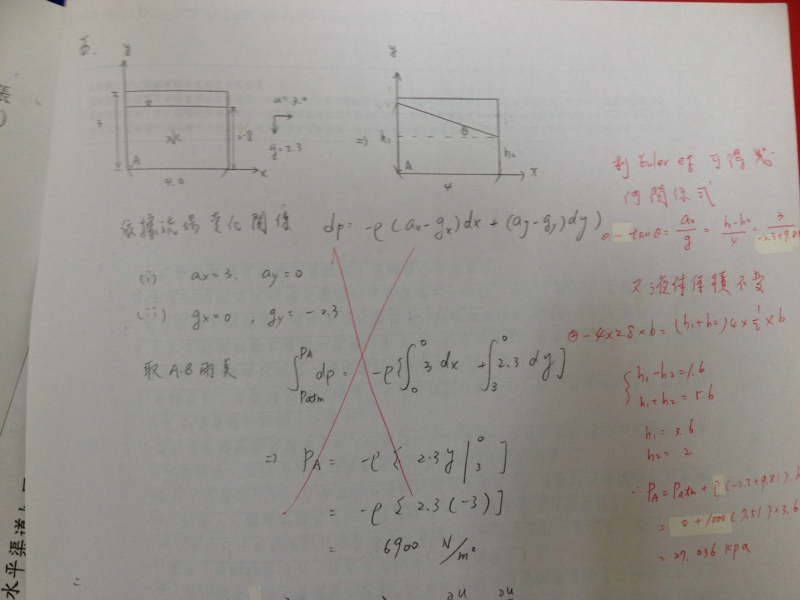 五.
y
3
水
A
4.0
x
2.8
a=3.0
g=2.3
⇒
y
h₁
θ
h₂
A
4
x
依據流場變化關係 dp = -ρ(ax-gx)dx+(ay-gy)dy)
(i) ax=3, ay=0
(ii) gx=0, gy=-2.3
取A.B兩頁 ∫_{Patm}^{PA} dp = -ρ{∫_0^0 3dx + ∫_3^0 2.3dy]
⇒ PA = -ρ{ 2.3y|_3^0 ]
= -ρ{ 2.3(-3)]
= 6900 N/m²
=
利Euler eq 可得
何關係式
①- tanθ = ax/g = h-h₂/4 = 3/-2.3+9.81
又液体体積不变
②-4×2.8×b=(h₁+h₂)4×1/2×b
{h₁-h₂=1.6
h₁+h₂=5.6
h₁=3.6
h₂=2
∴PA=Patm+ρ(-2.3+9.81).h
= 0+1000(7.51)×3.6
=27.036 kpa
水平渠道
張